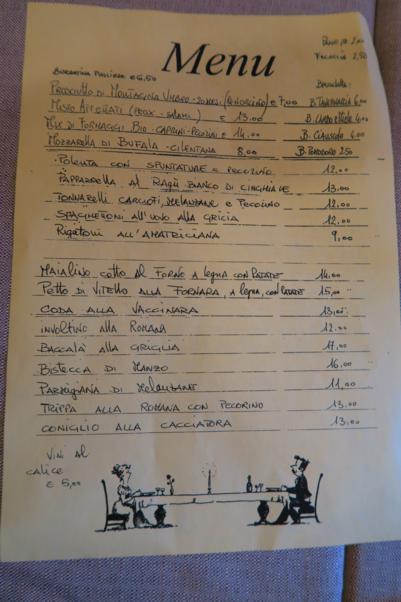 Menu
Pane pp 2,00
Focaccia 2,50
Burratina Pugliese € 6,50
Bruschette:
Prosciutto di Montagna € 7,00 B. Tartufata 6,00
Misto Affettati (Prox - Salumi) € 13.00 6,00
Mix di Formaggi Bio - Caprini - Pecorini € 14.00 6,00
Mozzarella di Bufala - Cilentana 8,00 B. Pomodoro 2,50
Polenta con spuntature e pecorino 12,00
Pappardella al Ragù Bianco di Cinghiale 13,00
Tonnarelli carciofi, Melanzane e Pecorino 12,00
Spaghettoni all'uovo alla gricia 12,00
Rigatoni all'amatriciana 9,00
Maialino cotto al forno a legna con patate 14,00
Petto di Vitello alla Fornara, a legna, con patate 15,00
Coda alla Vaccinara 13,00
Involtino alla Romana 12,00
Baccalà alla Griglia 17,00
Bistecca di Manzo 16,00
Parmigiana di Melanzane 11,00
Trippa alla Romana con Pecorino 13,00
Coniglio alla Cacciatora 13,00
Vini al
calice
€ 5,00